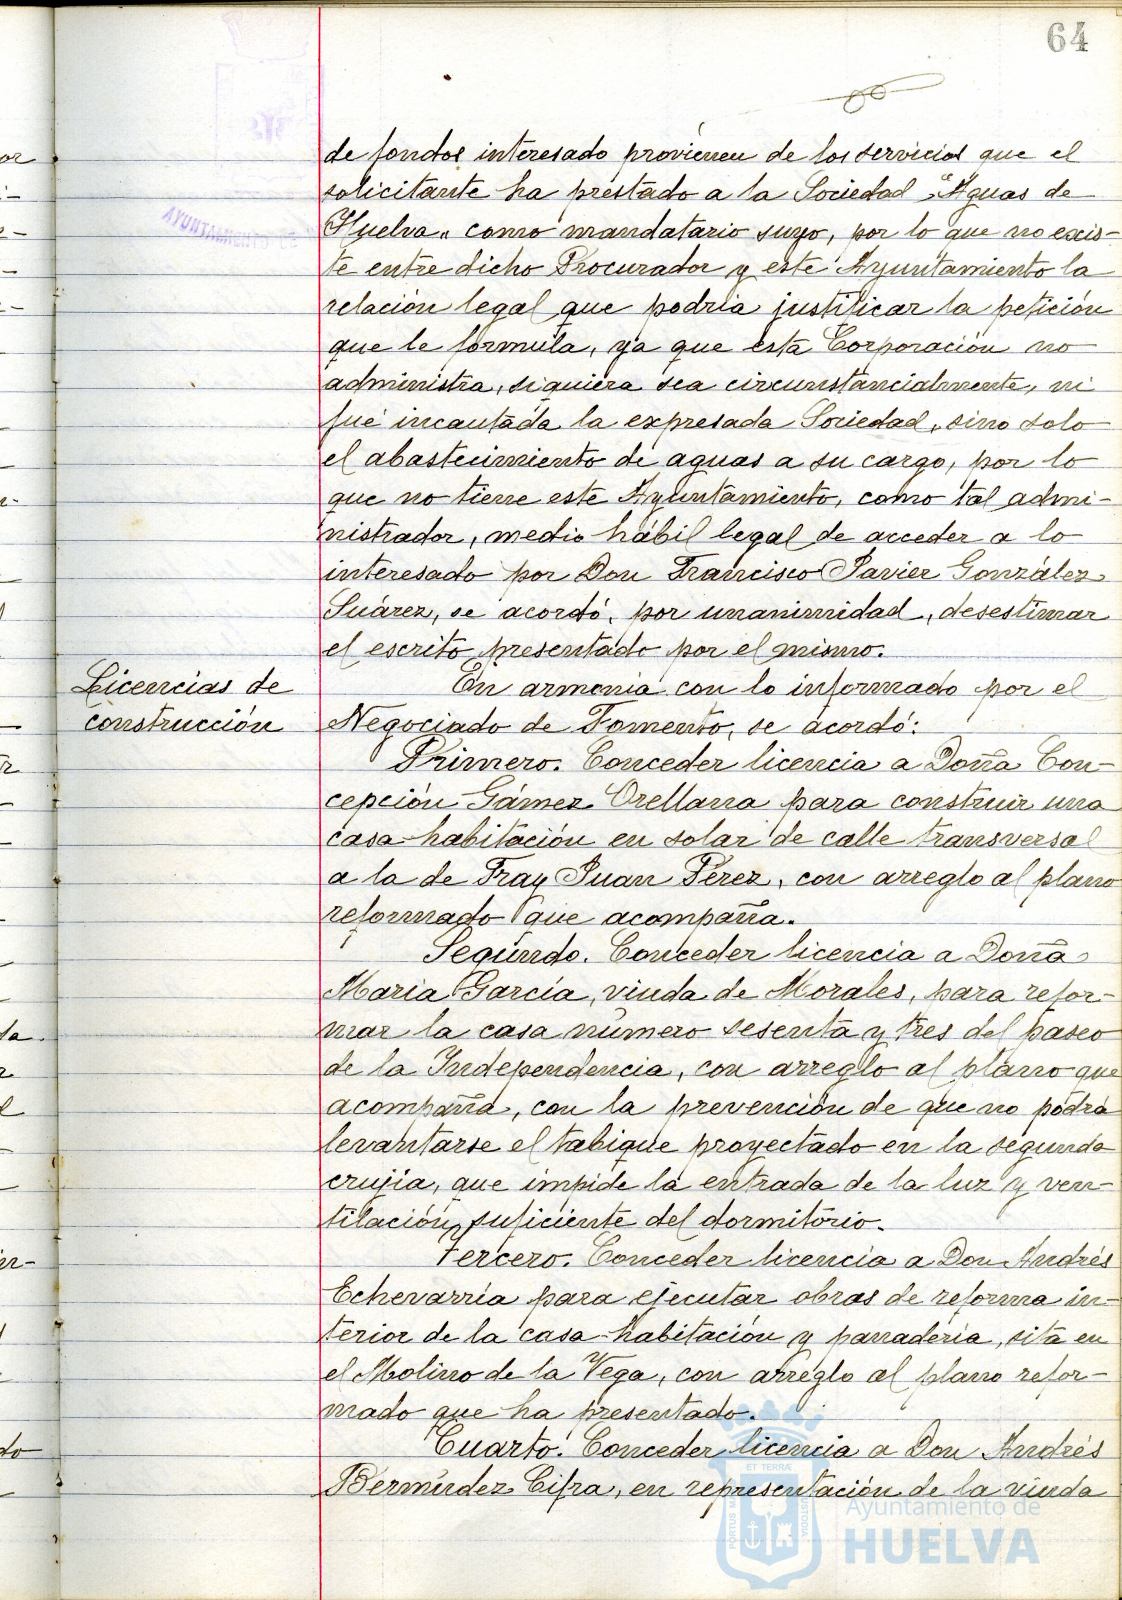 64
de fondos interesado provienen de los servicios que el
solicitante ha prestado a la Sociedad "Aguas de
Huelva" como mandatario suyo, por lo que no exis-
te entre dicho Procurador y este Ayuntamiento la
relación legal que podría justificar la petición
que le formula, ya que esta Corporación no
administra, siquiera sea circunstancialmente, ni
fué incautada la expresada Sociedad, sino solo
el abastecimiento de aguas a su cargo, por lo
que no tiene este Ayuntamiento, como tal admi-
nistrador, medio hábil legal de acceder a lo
interesado por Don Francisco Javier González
Suárez, se acordó, por unanimidad, desestimar
el escrito presentado por el mismo.
Licencias de
construcción
En armonía con lo informado por el
Negociado de Fomento, se acordó:
Primero. Conceder licencia a Doña Con-
cepción Gámez Orellana para construir una
casa-habitación en solar de calle transversal
a la de Fray Juan Pérez, con arreglo al plano
reformado que acompaña.
Segundo. Conceder licencia a Doña
María García, viuda de Morales, para refor-
mar la casa número sesenta y tres del paseo
de la Independencia, con arreglo al plano que
acompaña, con la prevención de que no podrá
levantarse el tabique proyectado en la segunda
crujía, que impide la entrada de la luz y ven-
tilación suficiente del dormitorio.
Tercero. Conceder licencia a Don Andrés
Echevarría para ejecutar obras de reforma in-
terior de la casa-habitación y panadería, sita en
el Molino de la Vega, con arreglo al plano refor-
mado que ha presentado.
Cuarto. Conceder licencia a Don Andrés
Bermúdez Cifra, en representación de la viuda
Ayuntamiento de
HUELVA